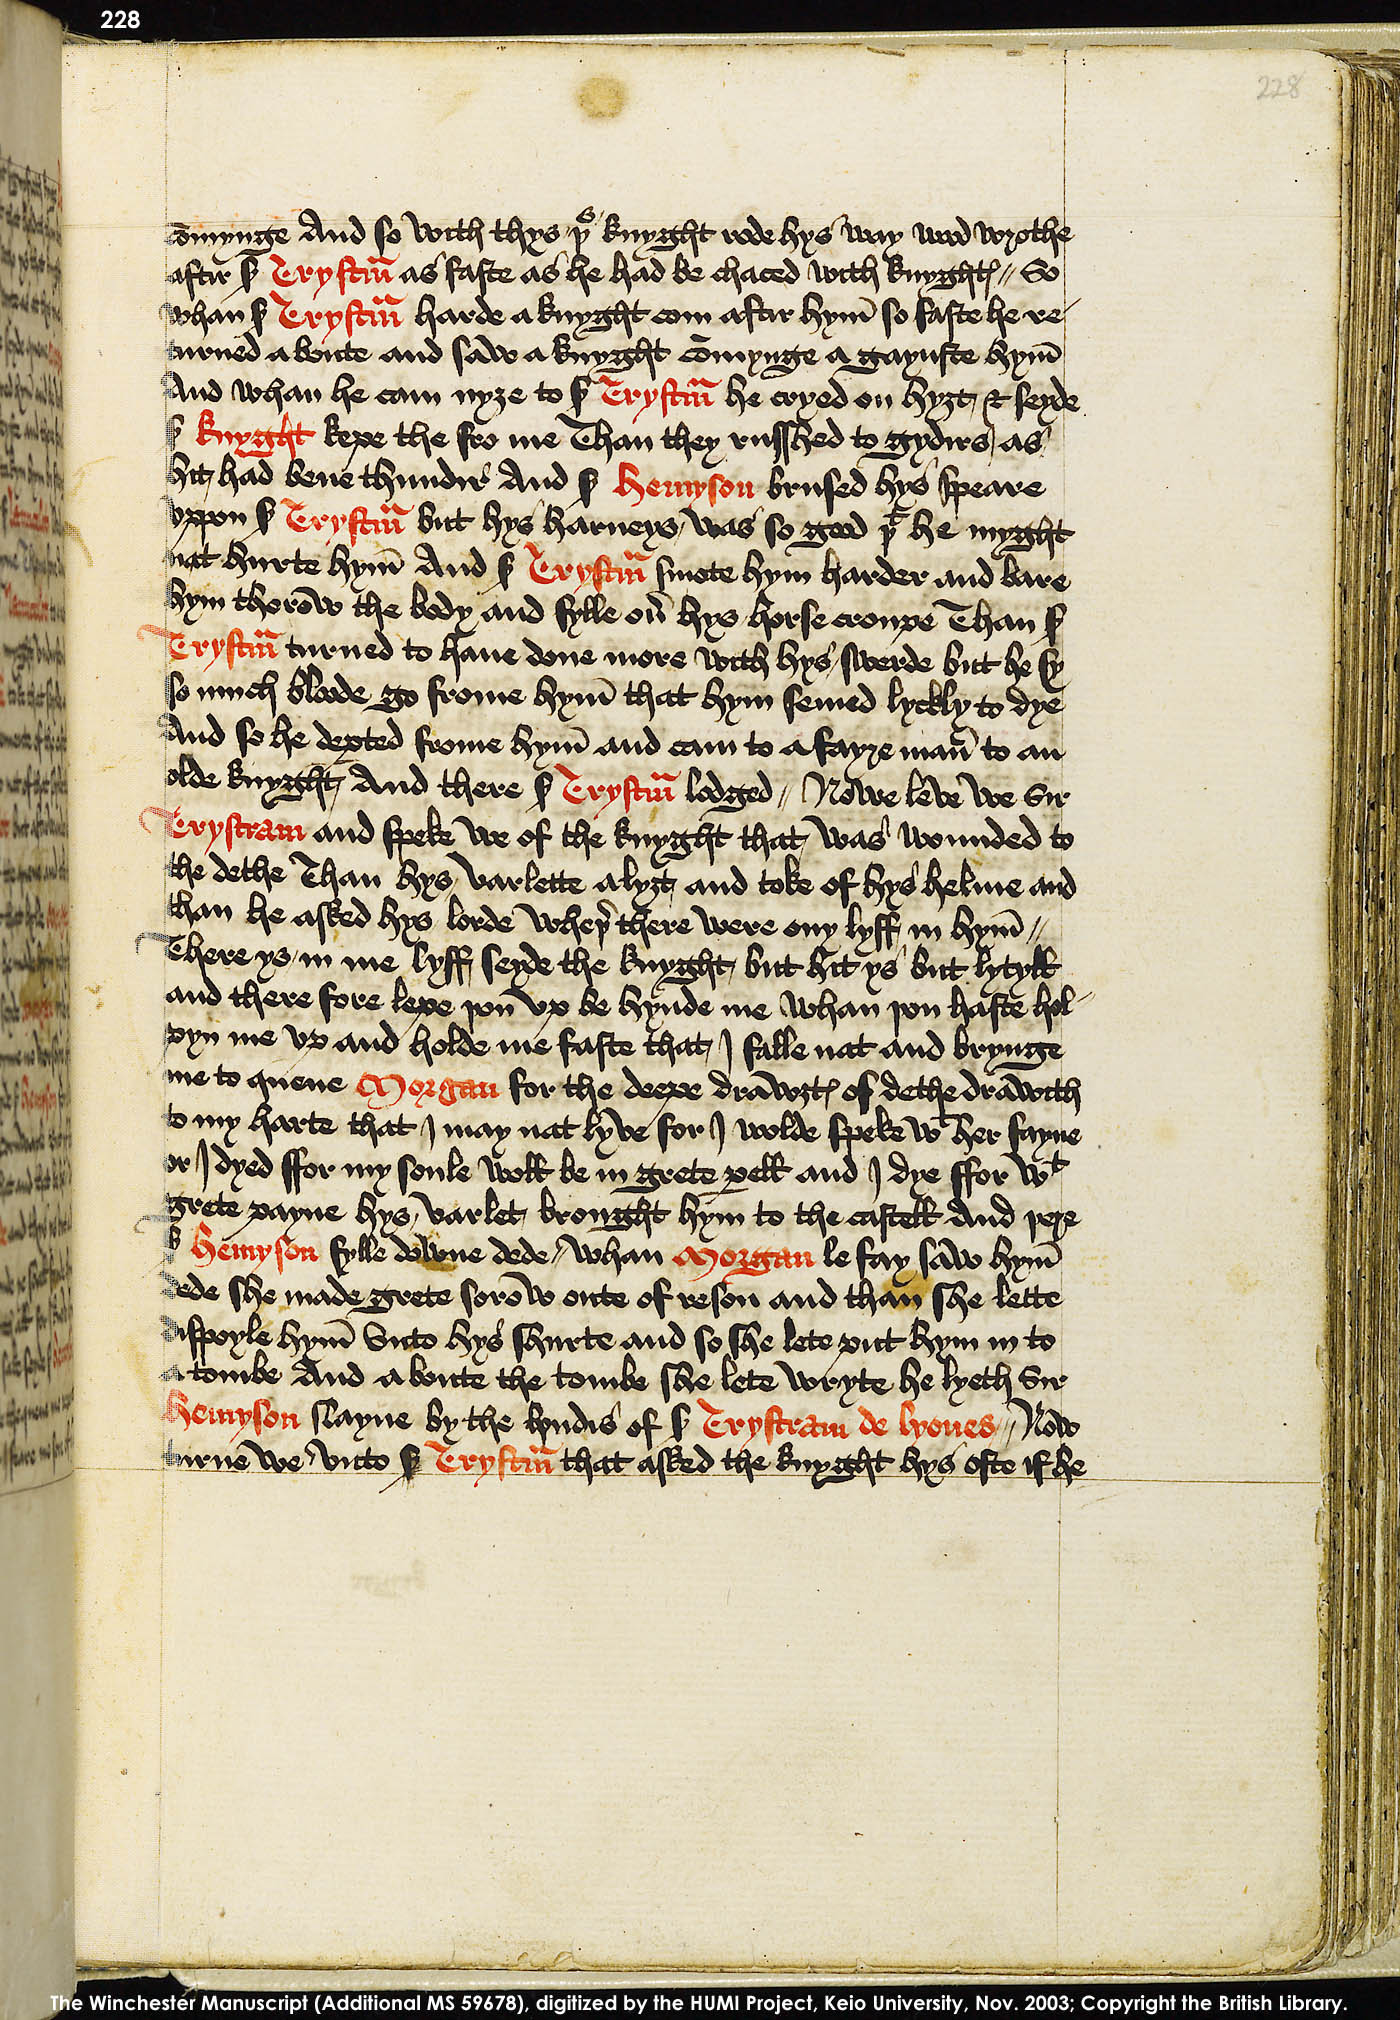 228
228
comynge And so with thys þs knyght rode hys way wood wrothe
aftir sr Trystrm̃ as faste as he had be chaced with knyghtꝭ // So
whan sr Trystrm̃ harde a knyght com aftir hym̃ so faste he re-
turned aboute and saw a knyght comynge a gaynste hym̃
And whan he cam nyȝe to sr Trystrm̃ he cryed on hyȝt & seyde
sr knyght kepe the fro me Than they russhed to gydirs as
hit had bene thundir And sr Hemyson brused hys speare
vppon sr Trystrm̃ but hys harneys was so good þt he myght
nat hurte hym̃ And sr Trystrm̃ smote hym harder and bare
hym thorow the body and fylle ouir hys horse croupe Than sr
Trystrm̃ turned to haue done more with hys swerde but he sy
so much bloode go frome hym̃ that hym semed lyckly to dye
And so he depted frome hym̃ and cam to a fayre man̄ to an
olde knyght And there sr Trystrm̃ lodged // Nowe leve we Sir
Trystram and speke we of the knyght that was wounded to
the dethe Than hys varlette alyȝt and toke of hys helme and
than he asked hys lorde wheþir there were ony lyff in hym̃ //
There ys in me lyff seyde the knyght but hit ys but lytyll
and there fore lepe þou vp be hynde me whan þou haste hol-
pyn me vp and holde me faste that I falle nat and brynge
me to quene Morgan for the deepe drawȝtꝭ of dethe drawith
to my harte that I may nat lyve for I wolde speke wt her fayne
or I dyed ffor my soule woll be in grete pell and I dye ffor wt
grete payne hys varlet brought hym to the castell And þere
sr Hemyson fylle downe dede // whan Morgan le fay saw hym̃
dede she made grete sorow oute of reson and than she lette
dispoyle hym̃ Vnto hys shurte and so she lete put hym in to
a tombe And aboute the tombe she lete wryte he lyeth Sir
Hemyson slayne by the hondis of sr Trystram de lyones // Now
turne we vnto sr Trystrm̃ that asked the knyght hys oste if he
The Winchester Manuscript (Additional MS 59678), digitized by the HUMI Project, Keio University, Nov. 2003; Copyright the British Library.